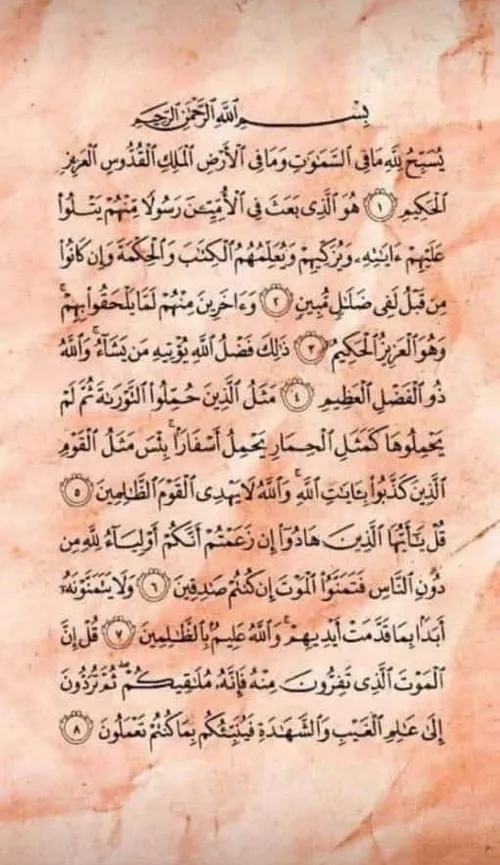 بِسْمِ ٱللَّهِ ٱلرَّحْمَٰنِ ٱلرَّحِيمِ
يُسَبِّحُ لِلَّهِ مَا فِى ٱلسَّمَٰوَٰتِ وَمَا فِى ٱلْأَرْضِ ٱلْمَلِكِ ٱلْقُدُّوسِ ٱلْعَزِيزِ
ٱلْحَكِيمِ ١ هُوَ ٱلَّذِى بَعَثَ فِى ٱلْأُمِّيِّـۧنَ رَسُولًا مِّنْهُمْ يَتْلُوا۟
عَلَيْهِمْ ءَايَٰتِهِۦ وَيُزَكِّيهِمْ وَيُعَلِّمُهُمُ ٱلْكِتَٰبَ وَٱلْحِكْمَةَ وَإِن كَانُوا۟
مِن قَبْلُ لَفِى ضَلَٰلٍ مُّبِينٍ ٢ وَءَاخَرِينَ مِنْهُمْ لَمَّا يَلْحَقُوا۟ بِهِمْ ۚ
وَهُوَ ٱلْعَزِيزُ ٱلْحَكِيمُ ٣ ذَٰلِكَ فَضْلُ ٱللَّهِ يُؤْتِيهِ مَن يَشَآءُ ۚ وَٱللَّهُ
ذُو ٱلْفَضْلِ ٱلْعَظِيمِ ٤ مَثَلُ ٱلَّذِينَ حُمِّلُوا۟ ٱلتَّوْرَىٰةَ ثُمَّ لَمْ
يَحْمِلُوهَا كَمَثَلِ ٱلْحِمَارِ يَحْمِلُ أَسْفَارًۢا ۚ بِئْسَ مَثَلُ ٱلْقَوْمِ
ٱلَّذِينَ كَذَّبُوا۟ بِـَٔايَٰتِ ٱللَّهِ ۚ وَٱللَّهُ لَا يَهْدِى ٱلْقَوْمَ ٱلظَّٰلِمِينَ ٥
قُلْ يَٰٓأَيُّهَا ٱلَّذِينَ هَادُوٓا۟ إِن زَعَمْتُمْ أَنَّكُمْ أَوْلِيَآءُ لِلَّهِ مِن
دُونِ ٱلنَّاسِ فَتَمَنَّوُا۟ ٱلْمَوْتَ إِن كُنتُمْ صَٰدِقِينَ ٦ وَلَا يَتَمَنَّوْنَهُۥٓ
أَبَدًۢا بِمَا قَدَّمَتْ أَيْدِيهِمْ ۚ وَٱللَّهُ عَلِيمٌۢ بِٱلظَّٰلِمِينَ ٧ قُلْ إِنَّ
ٱلْمَوْتَ ٱلَّذِى تَفِرُّونَ مِنْهُ فَإِنَّهُۥ مُلَٰقِيكُمْ ۖ ثُمَّ تُرَدُّونَ
إِلَىٰ عَٰلِمِ ٱلْغَيْبِ وَٱلشَّهَٰدَةِ فَيُنَبِّئُكُم بِمَا كُنتُمْ تَعْمَلُونَ ٨